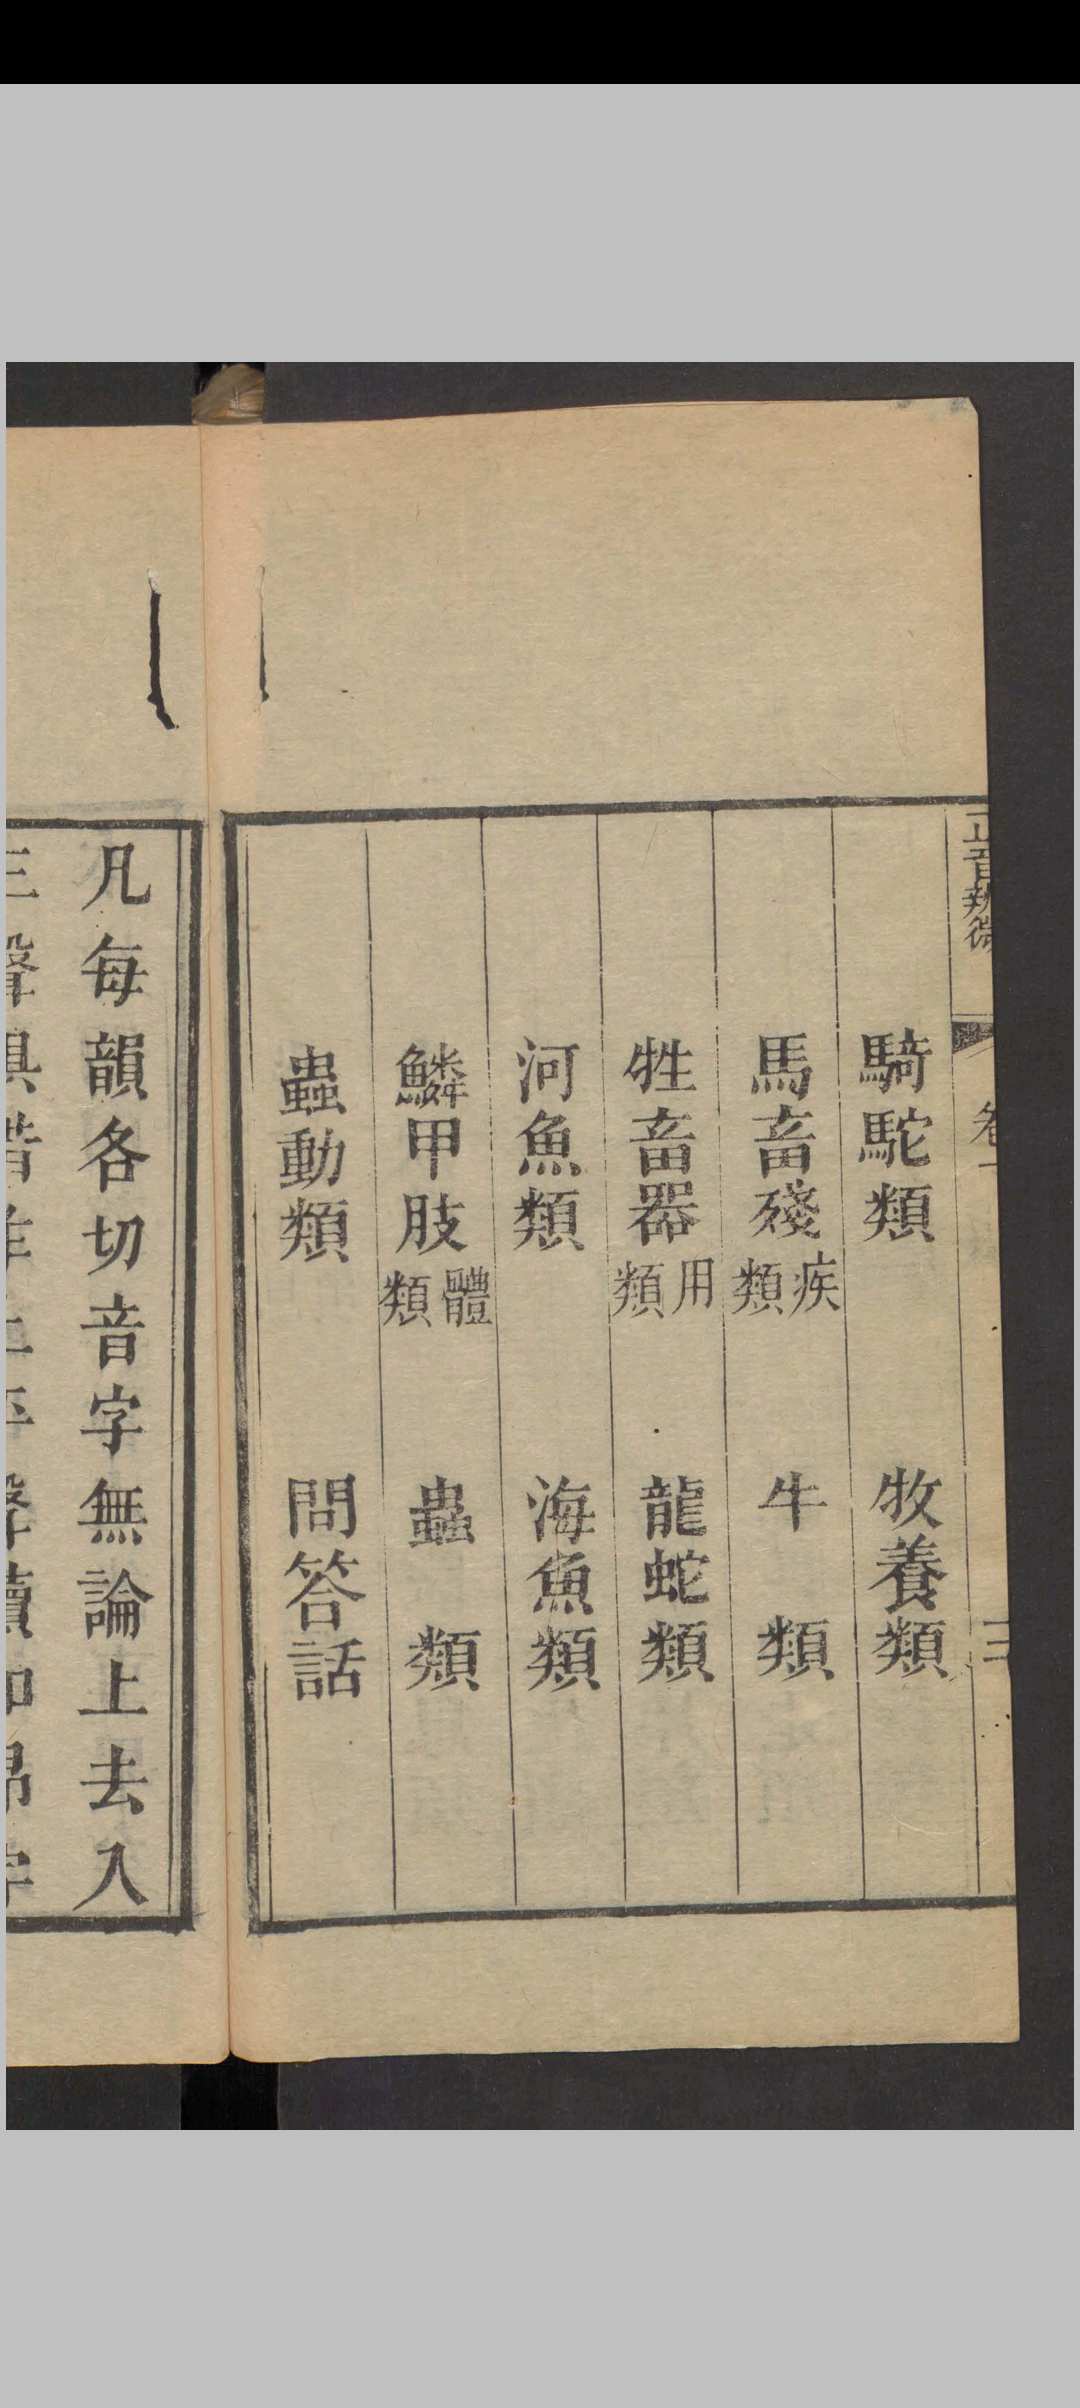 正音辨微
卷一
三
騎駝類 牧養類
馬畜殘疾類 牛類
牲畜器用類 龍蛇類
河魚類 海魚類
鱗甲肢體類 蟲類
蟲動類 問答話
凡每韻各切音字無論上去入
三聲俱借作上平聲讀如昂字